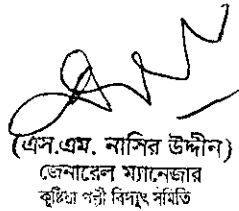 (এস.এম. নাসির উদ্দীন)
জেনারেল ম্যানেজার
কুষ্টিয়া পল্লী বিদ্যুৎ সমিতি